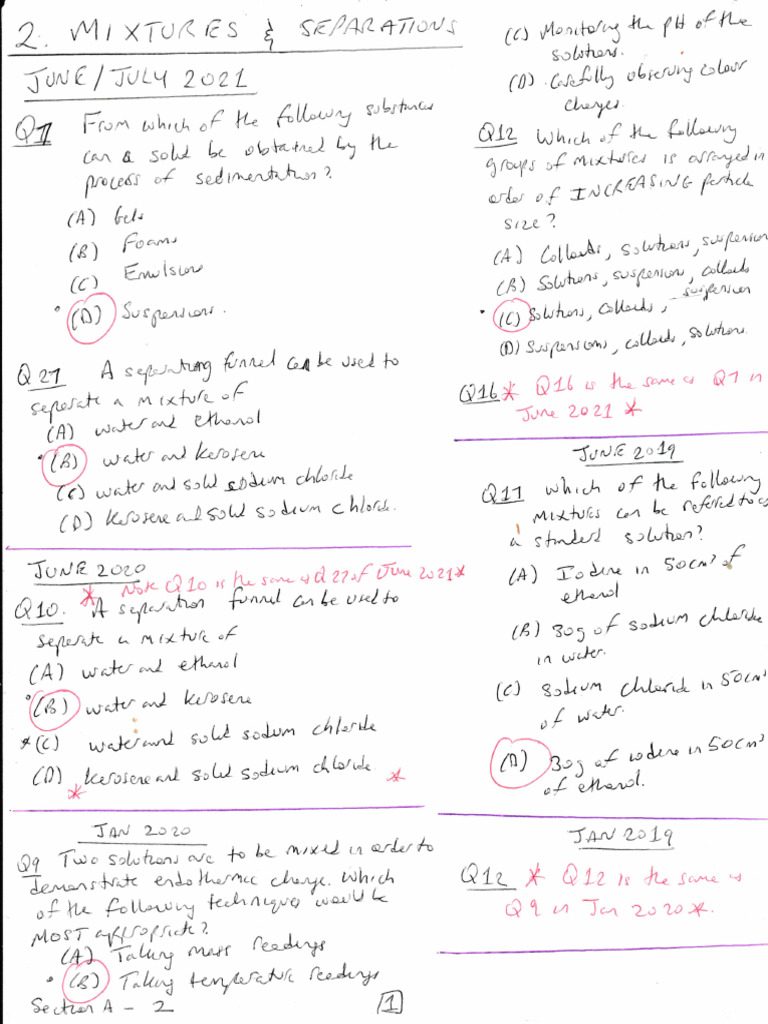 2. MIXTURES & SEPARATIONS
JUNE/JULY 2021
Q7 From which of the following substances
can a solid be obtained by the
process of sedimentation?
(A) Gels
(B) Foams
(C) Emulsion
(D) Suspensions.
Q27 A separating funnel can be used to
seperate a mixture of
(A) water and ethanol
(B) water and kerosene
(C) water and solid sodium chloride
(D) Kerosene and solid sodium chloride.
JUNE 2020
* Note Q10 is the same as Q27 of June 2021 *
Q10. A separation funnel can be used to
seperate a mixture of
(A) water and ethanol
(B) water and kerosene
*(C) water and solid sodium chloride
(D) kerosene and solid sodium chloride *
*
JAN 2020
Q9 Two solutions are to be mixed in order to
demonstrate endothermic change. Which
of the following techniques would be
MOST appropriate?
(A) Taking mass readings
(B) Taking temperature readings
Section A - 2
1
(C) Monitoring the pH of the
solutions.
(D) Carefully observing colour
changes.
Q12 Which of the following
groups of mixtures is arranged in
order of INCREASING particle
size?
(A) Colloids, solutions, suspension
(B) Solutions, suspension, colloids
(C) Solutions, colloids, suspension
(D) Suspensions, colloids, solutions.
Q16 * Q16 is the same as Q7 in
June 2021 *
JUNE 2019
Q17 Which of the following
mixtures can be referred to as
a standard solution?
(A) Iodine in 50cm³ of
ethanol
(B) 30g of sodium chloride
in water.
(C) Sodium chloride in 50cm³
of water.
(D) 30g of iodine in 50cm³
of ethanol.
JAN 2019
Q12 * Q12 is the same as
Q9 in Jan 2020 *.